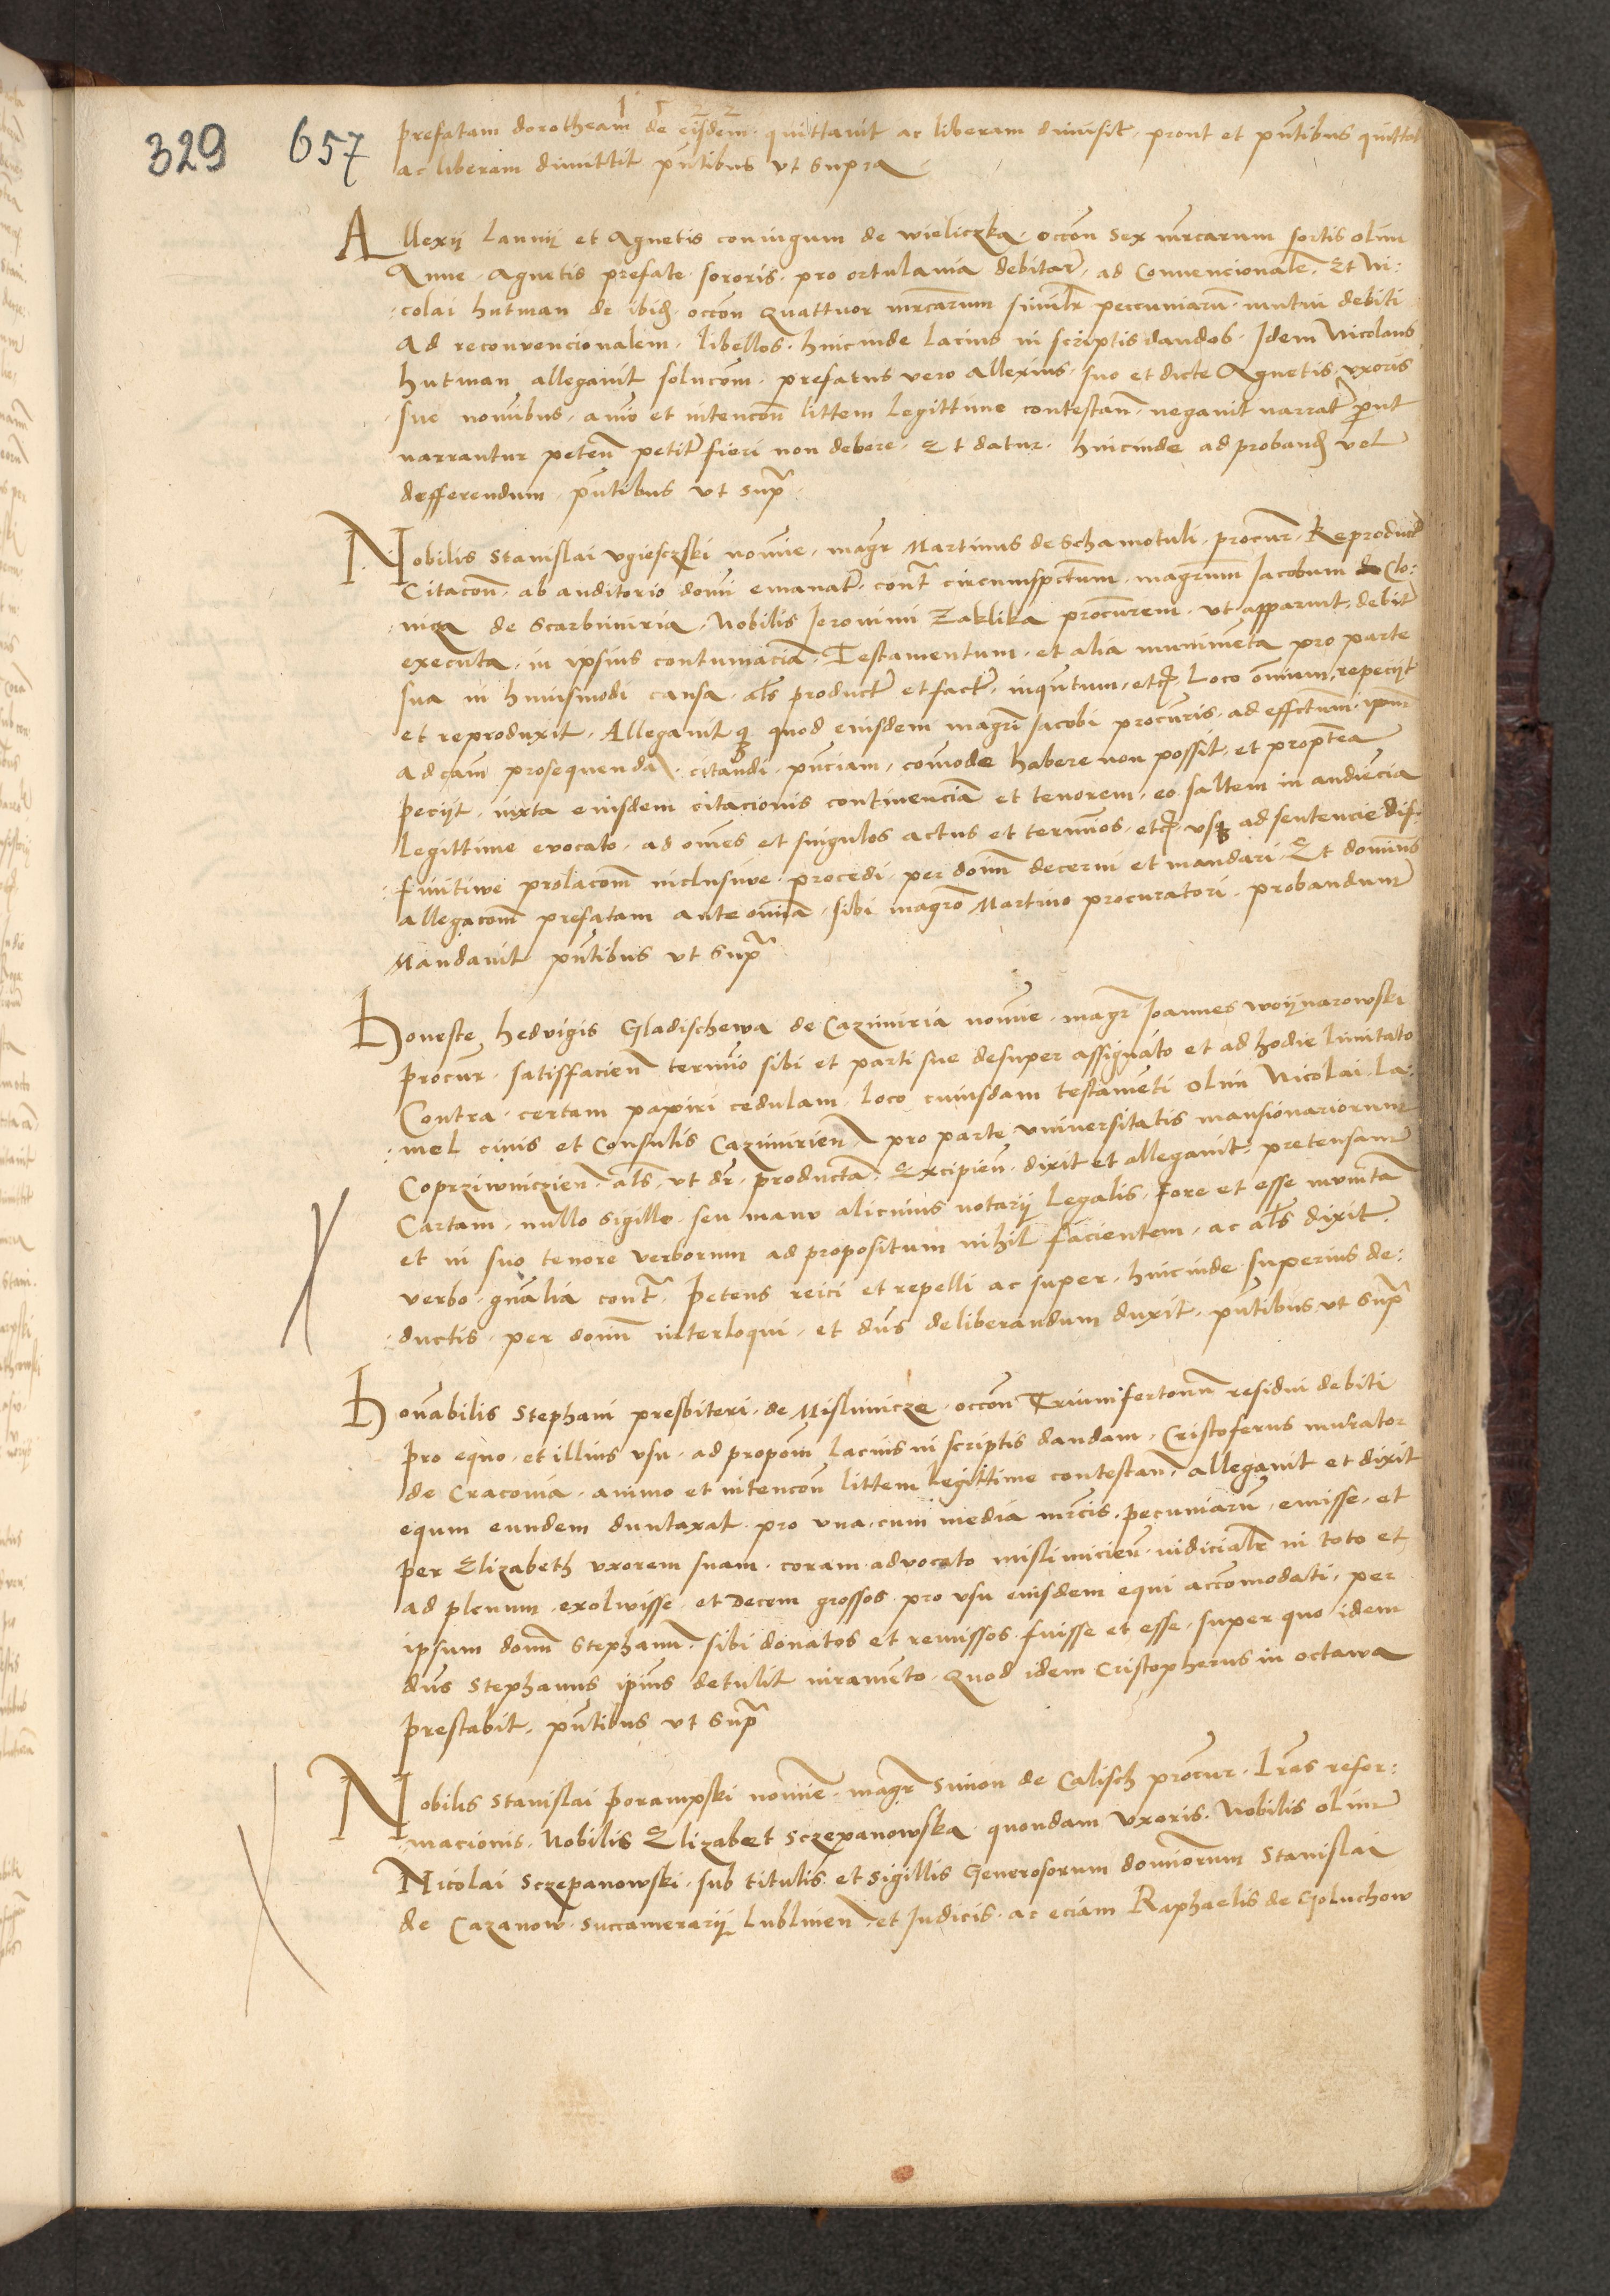 1 5 2 2
329 657
prefatam dorotheam de eisdem quittauit ac liberam dimisit, prout et pñtibus quittat
ac liberam dimittit pñtibus vt supra
Allexij Lannij et Agnetis coniugum de wieliczka occoñ sex mrcarum sortis olim
Anne Agnetis prefate sororis pro ortulania debitar, ad Conuencionale, Et Ni:
:colai hutman de ibid occoñ quattuor mrcarum similr peccuniarũ mutui debiti
Ad reconuencionalem libellos hincinde lacius in scriptis dandos Idem Nicolaus
hutman allegauit solucom prefatus vero allexius suo et dicte Agnetis vxoris
sue nomĩbus aĩo et intencoñ littem legittime contestañ negauit narrat prout
narrantur peteñ petit fieri non debere Et datur hincinde ad proband vel
defferendum pñtibus vt supª
Nobilis stanislai vgiesczski noĩne magr Martinus de Schamotuli procur Reproducit
Citacoñ ab auditorio domĩ emanat contª circumspctum magrum Iacobum de Clo:
:nica de Scarbimiria Nobilis Ieronimi Zaklika procurem vt apparuit debit
executa in ipsius contumaciã Testamentum et alia munimẽta pro parte
sua in huiusmodi causa als product et fact inquantum etc Loco omnium repeciit
et reproduxit Allegauitq quod eiusdem magri Iacobi procuris ad effctum ipum
ad cam prosequendã citandi pñciam comode habere non possit et proptea
peciit iuxta eiusdem citacionis continenciã et tenorem eo saltem in audiẽcia
legittime euocato ad om̃es et singulos actus et termĩos etc vsq ad sentencie dif:
:finitiwe prolacom inclusiue procedi per domĩ decerni et mandari Et domĩnus
allegacom prefatam ante omnia sibi magro Martino procuratori probandum
Mandauit pñtibus vt supª
Honeste hedvigis Gladischewa de Cazimiria noĩne magr Ioannes woijnarowski
procur satisfacien termĩo sibi et parti sue desuper assignato et ad hodie limitato
Contra certam papiri cedulam loco cuiusdam testamẽti olim Nicolai La:
:mel ciuis et Consulis Cazimirien pro parte vniuersitatis mansionariorum
Coprziwniczien als vt dr producta Excipieñ dixit et allegauit pretensam
Cartam nullo sigillo seu manu alicuius notarij legalis fore et esse munitã
et in suo tenore verborum ad propositum nihil facientem ac als dixit
verbo gñalia contª petens reici et repelli ac super hincinde superius de:
:ductis per domĩ interloqui et dñs deliberandum duxit pñtibus vt supª
Honõabilis Stephani presbiteri de Mislimicze occoñ Trium fertonum residui debiti
pro equo et illius vsu ad propoñ lacius in scriptis dandam Cristoferus murator
de Cracouia animo et intencoñ littem legittime contestañ allegauit et dixit
equm eundem duntaxat pro vna cum media mrcis pecuniarũ emisse et
per Elizabeth vxorem suam coram advocato mislimicien iudicialr in toto et
ad plenum exolwisse et Decem grossos pro vsu eiusdem equi accomodati per
ipsum domĩ Stephanũ sibi donatos et remissos fuisse et esse super quo idem
dñs Stephanus ipius detulit iuramento quod idem Cristopherus in octawa
prestabit pñtibus vt supª
Nobilis Stanislai Porampski noĩne magr Simon de Calisch procur lr̃as refor:
:macionis Nobilis Elizabet Sczepanowska quondam vxoris Nobilis olim
Nicolai Sczepanowski sub titulis et sigillis Generosorum domĩorum Stanislai
de Cazanow succamerarij Lublinen et Iudicis ac eciam Raphaelis de Goluchow